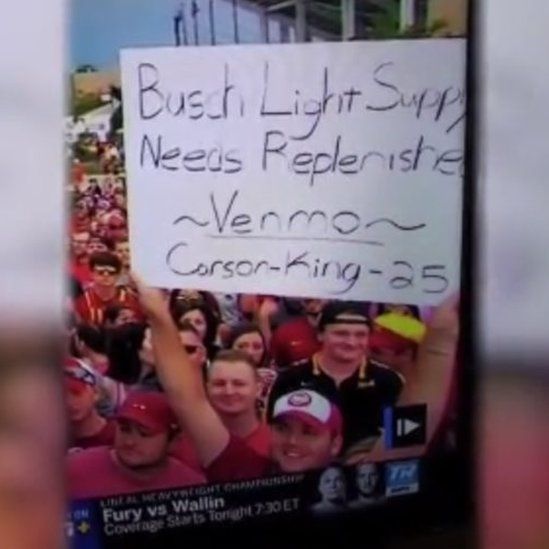 Busch Light Supp
Needs Replenishe
~Venmo~
Carson-King-25
LINEAL HEAVYWEIGHT CHAMPIONSHIP
Fury vs Wallin
Coverage Starts Tonight 7:30 ET
TR